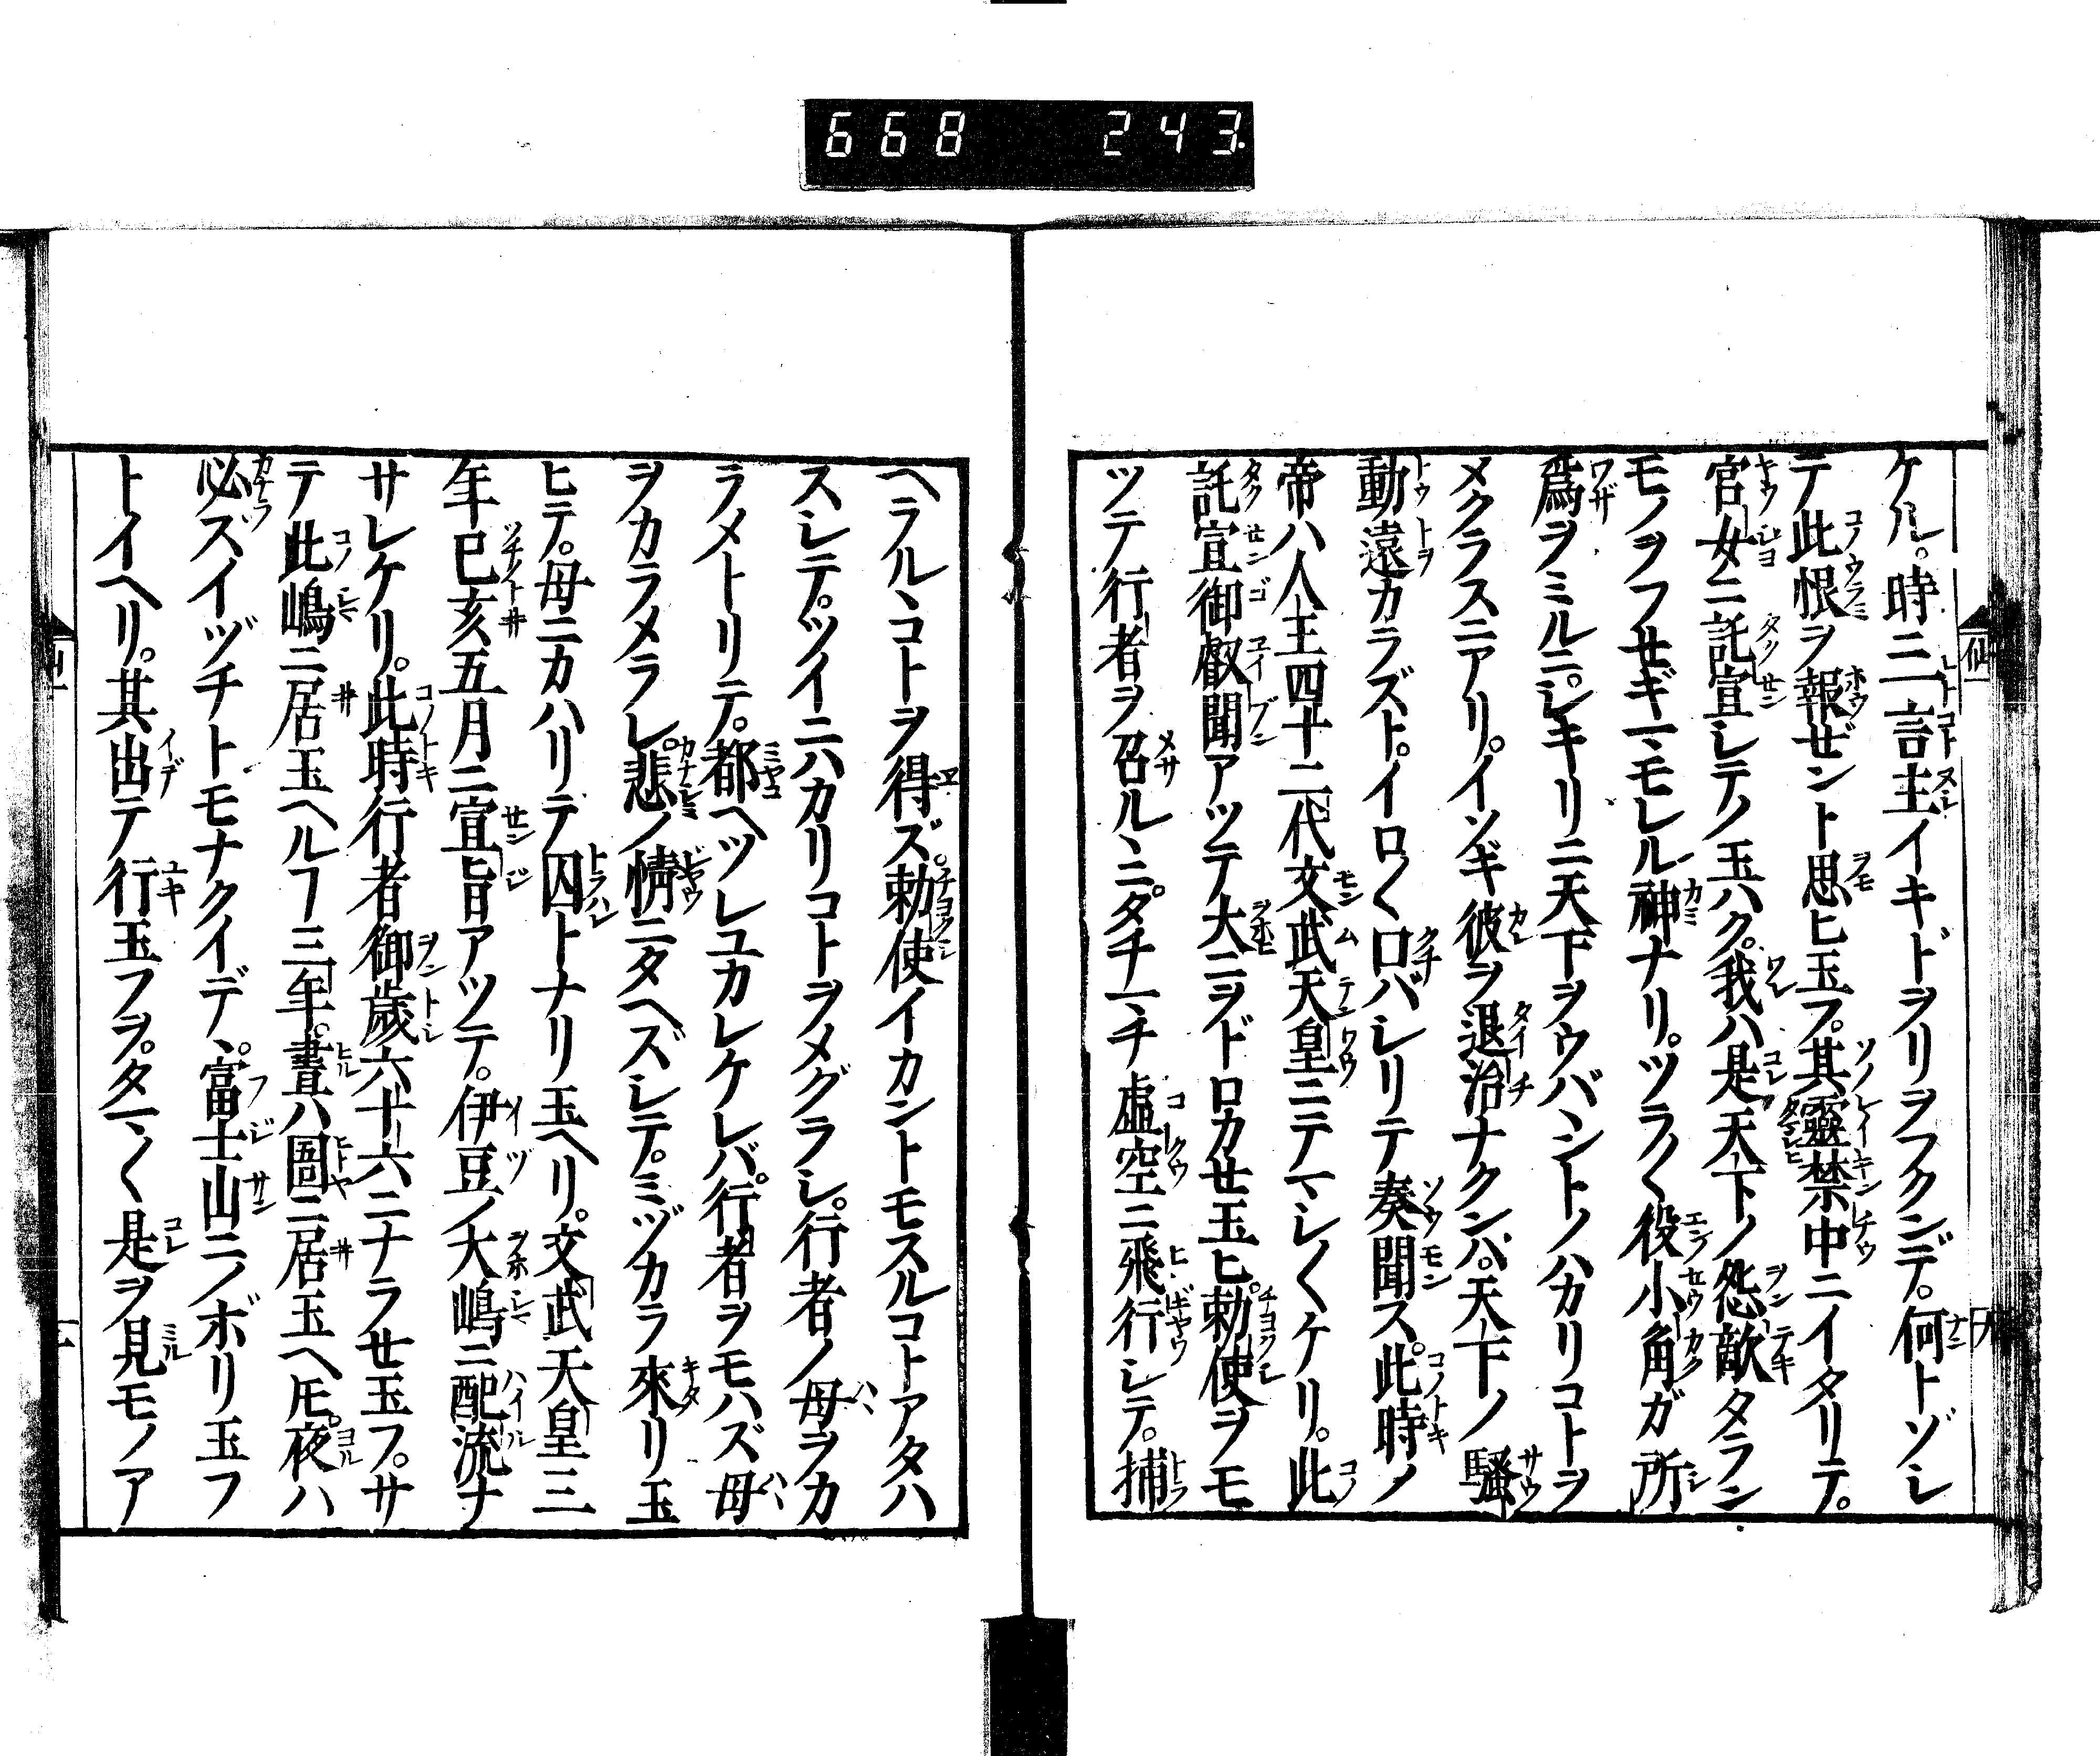 668 243.
ケル。時ニ一言主イキドヲリヲフクンデ。何トゾシ
テ此恨ヲ報ゼント思ヒ玉フ。其靈禁中ニイタリテ。
官女ニ託宣シテノ玉ハク。我ハ是天下ノ怨敵タラン
モノヲフセギマモレル神ナリ。ツラ〱役小角ガ所
爲ヲミルニ。シキリニ天下ヲウバヽントノハカリコトヲ
メクラスニアリ。イソギ彼ヲ退治ナクンバ。天下ノ騒
動遠カラズト。イロ〱口バシリテ奏聞ス。此時ノ
帝ハ人王四十二代文武天皇ニテマシ〱ケリ。此
託宣御叡聞アツテ大ニヲドロカセ玉ヒ。勅使ヲモ
ツテ行者ヲ召ルヽニ。タチマチ虚空ニ飛行シテ。捕
ヘラルヽコトヲ得ズ。勅使イカントモスルコトアタハ
スシテ。ツイニハカリコトヲメグラシ。行者ノ母ヲカ
ラメトリテ。都ヘツレユカレケレバ。行者ヲモハズ母
ヲカラメラレ。悲ノ情ニタヘズシテ。ミヅカラ來リ玉
ヒテ。母ニカハリテ囚トナリ玉ヘリ。文武天皇三
年己亥五月ニ宣旨アツテ。伊豆ノ大嶋ニ配流ナ
サレケリ。此時行者御歳六十六ニナラセ玉フ。サ
テ此嶋ニ居玉ヘルヿ三年。晝ハ圄ニ居玉ヘ𪜈。夜ハ
必ズイヅチトモナクイデヽ。富士山ニノボリ玉フ
トイヘリ。其出テ行玉フヲ。タマ〱是ヲ見モノア